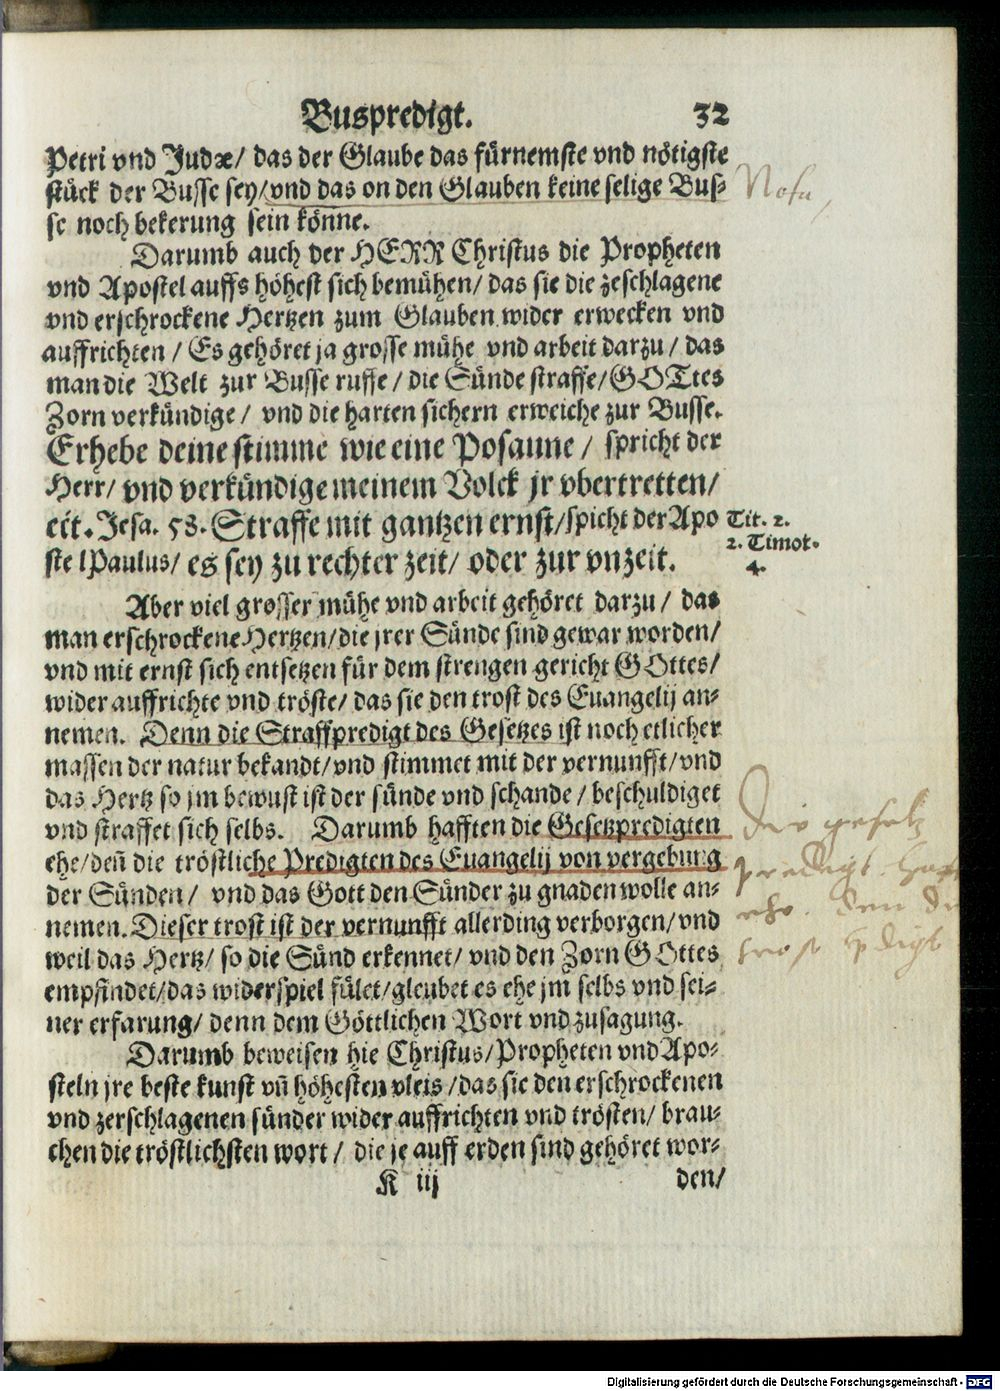 Buspredigt. 32
Petri vnd Judæ/ das der Glaube das fürnemste vnd nötigste
stück der Busse sey/vnd das on den Glauben keine selige Bus-
se noch bekerung sein könne.
Nota,
Darumb auch der HERR Christus die Propheten
vnd Apostel auffs höhest sich bemühen/ das sie die zeschlagene
vnd erschrockene Hertzen zum Glauben wider erwecken vnd
auffrichten / Es gehöret ja grosse mühe vnd arbeit darzu/ das
man die Welt zur Busse ruffe / die Sünde straffe/GOTtes
Zorn verkündige/ vnd die harten sichern erweiche zur Busse.
Erhebe deine stimme wie eine Posaune / spricht der
Herr/ vnd verkündige meinem Volck jr vbertretten/
ect. Jesa. 58. Straffe mit gantzen ernst/spicht der Apo
ste lPaulus/ es sey zu rechter zeit/ oder zur vnzeit.
Tit. 2.
2. Timot.
4.
Aber viel grosser mühe vnd arbeit gehöret darzu/ das
man erschrockene Hertzen/die jrer Sünde sind gewar worden/
vnd mit ernst sich entsetzen für dem strengen gericht GOttes/
wider auffrichte vnd tröste/ das sie den trost des Euangelij an-
nemen. Denn die Straffpredigt des Gesetzes ist noch etlicher
massen der natur bekandt/vnd stimmet mit der vernunfft/vnd
das Hertz so jm bewust ist der sünde vnd schande/ beschuldiget
vnd straffet sich selbs. Darumb hafften die Gesetzpredigten
ehe/deñ die tröstliche Predigten des Euangelij von vergebung
der Sünden/ vnd das Gott den Sünder zu gnaden wolle an-
nemen. Dieser trost ist der vernunfft allerding verborgen/vnd
weil das Hertz/ so die Sünd erkennet/ vnd den Zorn GOttes
empfindet/das widerspiel fület/gleubet es ehe jm selbs vnd sei-
ner erfarung/ denn dem Göttlichen Wort vnd zusagung.
Die gesetz
predigt
ehe. den die
trost
Darumb beweisen hie Christus/Propheten vnd Apo-
steln jre beste kunst vñ höhesten vleis /das sie den erschrockenen
vnd zerschlagenen sünder wider auffrichten vnd trösten/ brau-
chen die tröstlichsten wort / die je auff erden sind gehöret wor-
K iij den/
Digitalisierung gefördert durch die Deutsche Forschungsgemeinschaft - DFG